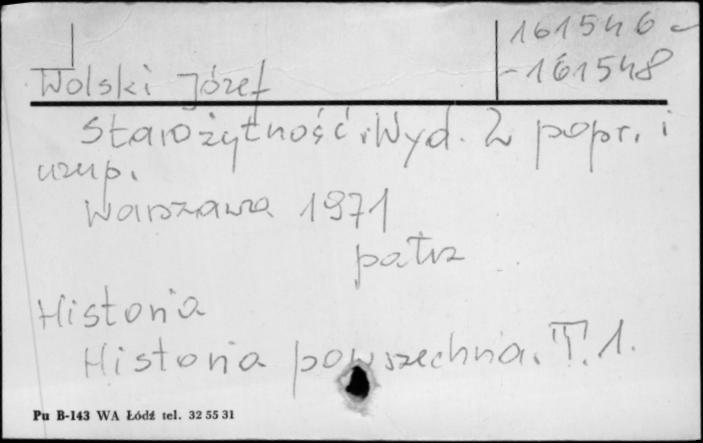 161546-
-161548
Wolski Józef
Starożytność. Wyd. 2 popr. i
uzup.
Warszawa 1971
patrz
Historia
Historia powszechna. T. 1.
Pu B-143 WA Łódź tel. 32 55 31